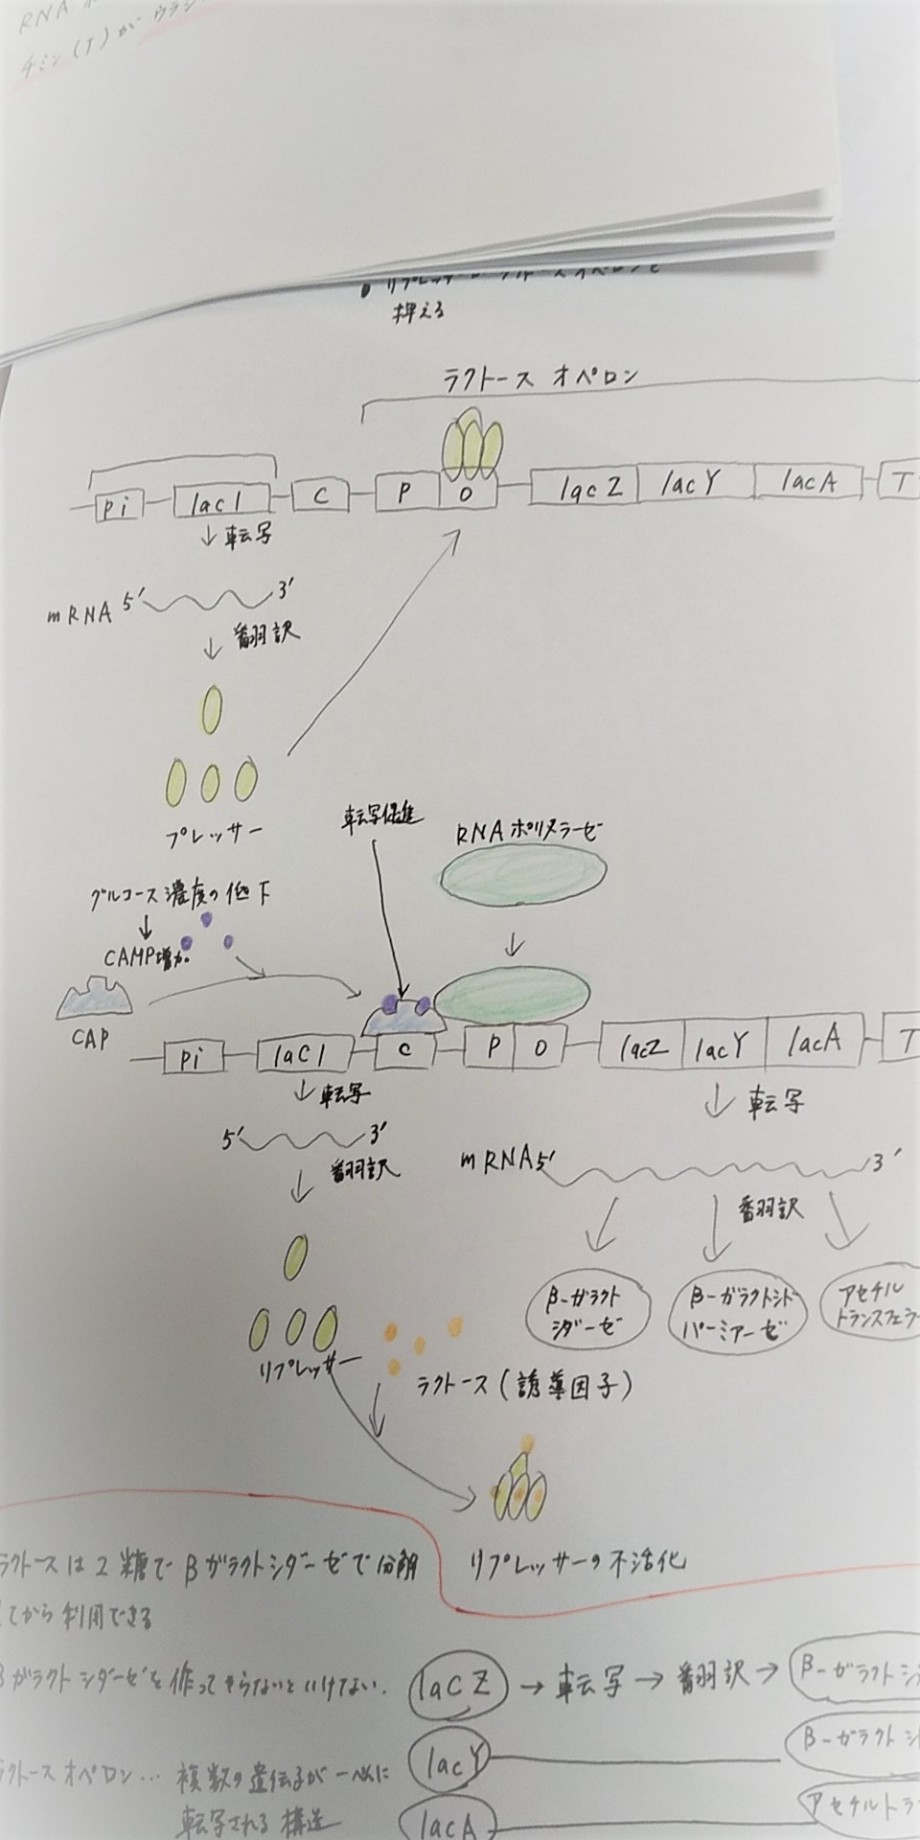 RNA
チミン(T)が ウラシ
抑える
ラクトース オペロン
Pi lacI C P O lacZ lacY lacA T
↓転写
mRNA 5' 3'
↓翻訳
プレッサー
転写促進
RNAポリメラーゼ
グルコース濃度の低下
↓
CAMP増加
CAP
Pi lacI C P O lacZ lacY lacA T
↓転写 ↓転写
5' 3' mRNA 5' 3'
↓翻訳 翻訳
β-ガラクト
シダーゼ
β-ガラクトシド
パーミアーゼ
アセチル
トランスフェラー
リプレッサー
ラクトース(誘導因子)
リプレッサーの不活化
ラクトースは2糖でβガラクトシダーゼで分解
してから利用できる
βガラクトシダーゼを作ってやらないといけない.
lacZ → 転写 → 翻訳 → β-ガラクトシ
lacY β-ガラクトシ
ラクトースオペロン… 複数の遺伝子が一緒に
転写される構造
lacA アセチルトラ